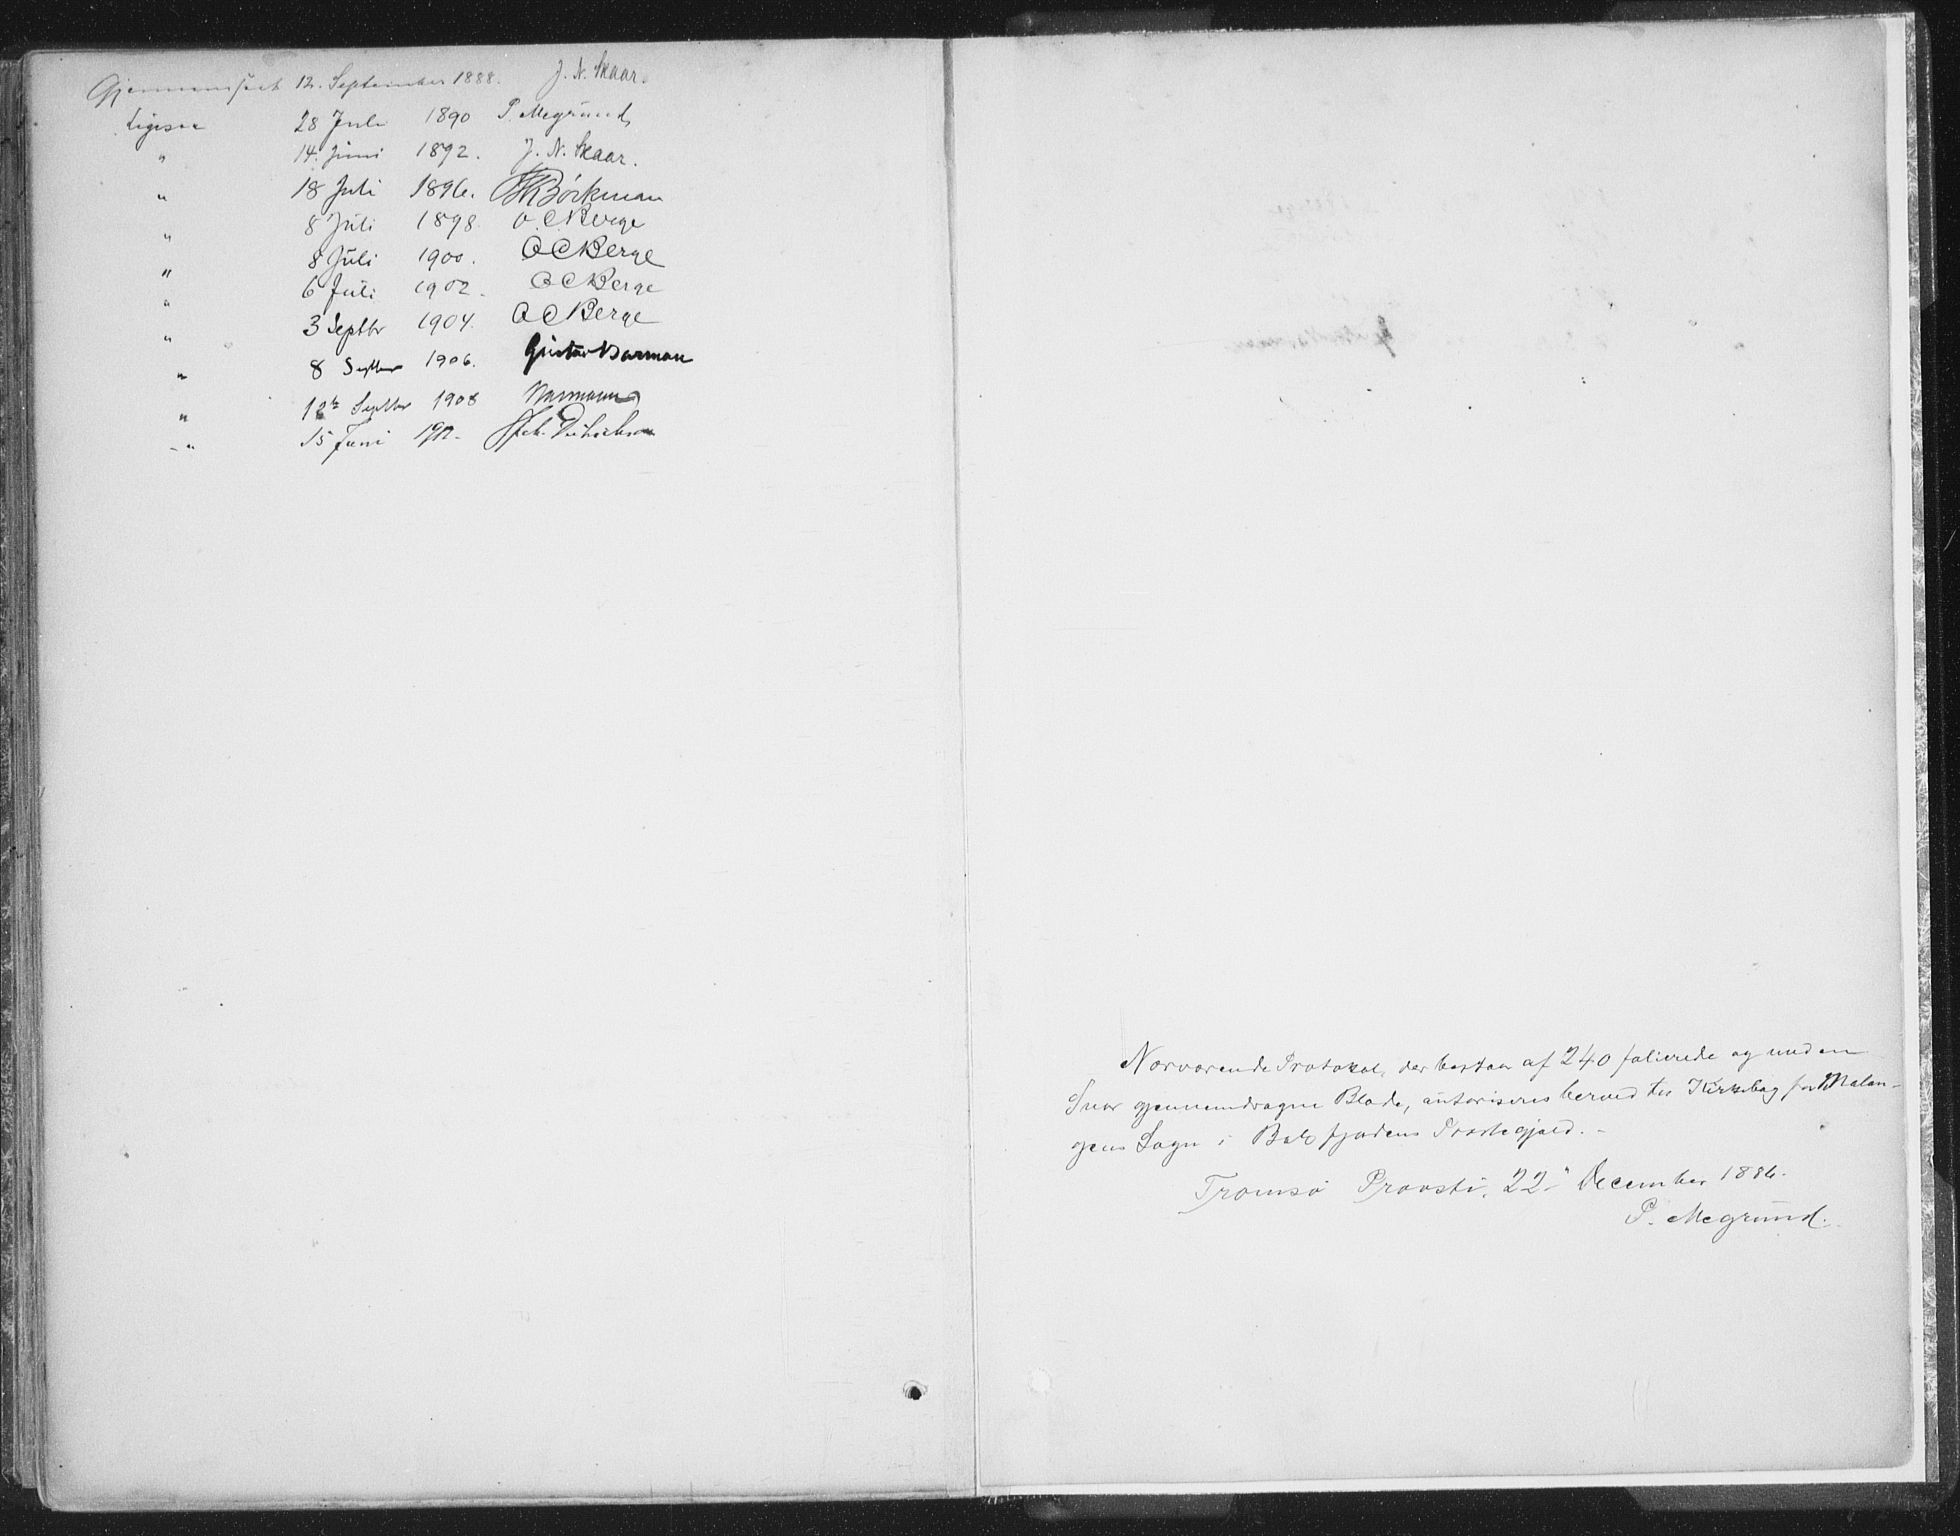 Gjennemseet 12. September 1888. J. N. Skaar.
Ligesaa 28 Juli 1890 P. Megrund
" 14. Juni 1892. J. N. Skaar.
" 18 Juli 1896. Bøckman
" 8 Juli 1898 O. C Berge
" 8 Juli 1900. O C Berge
" 6 Juli 1902. O C Berge
" 3 Septbr 1904. O C Berge
" 8 Septbr 1906. Gustav Barman
" 12te Septbr 1908 Barmann
- " 15 Juni 1912. Dietrichson
Nærværende Protokol, der bestaar af 240 folierede og med en
Snor gjennemdragne Blade, autoriseres herved til Kirkebog for Malan-
gens Sogn i Balsfjordens Præstegjæld. -
Tromsø Provsti, 22 December 1886.
P. Megrund.